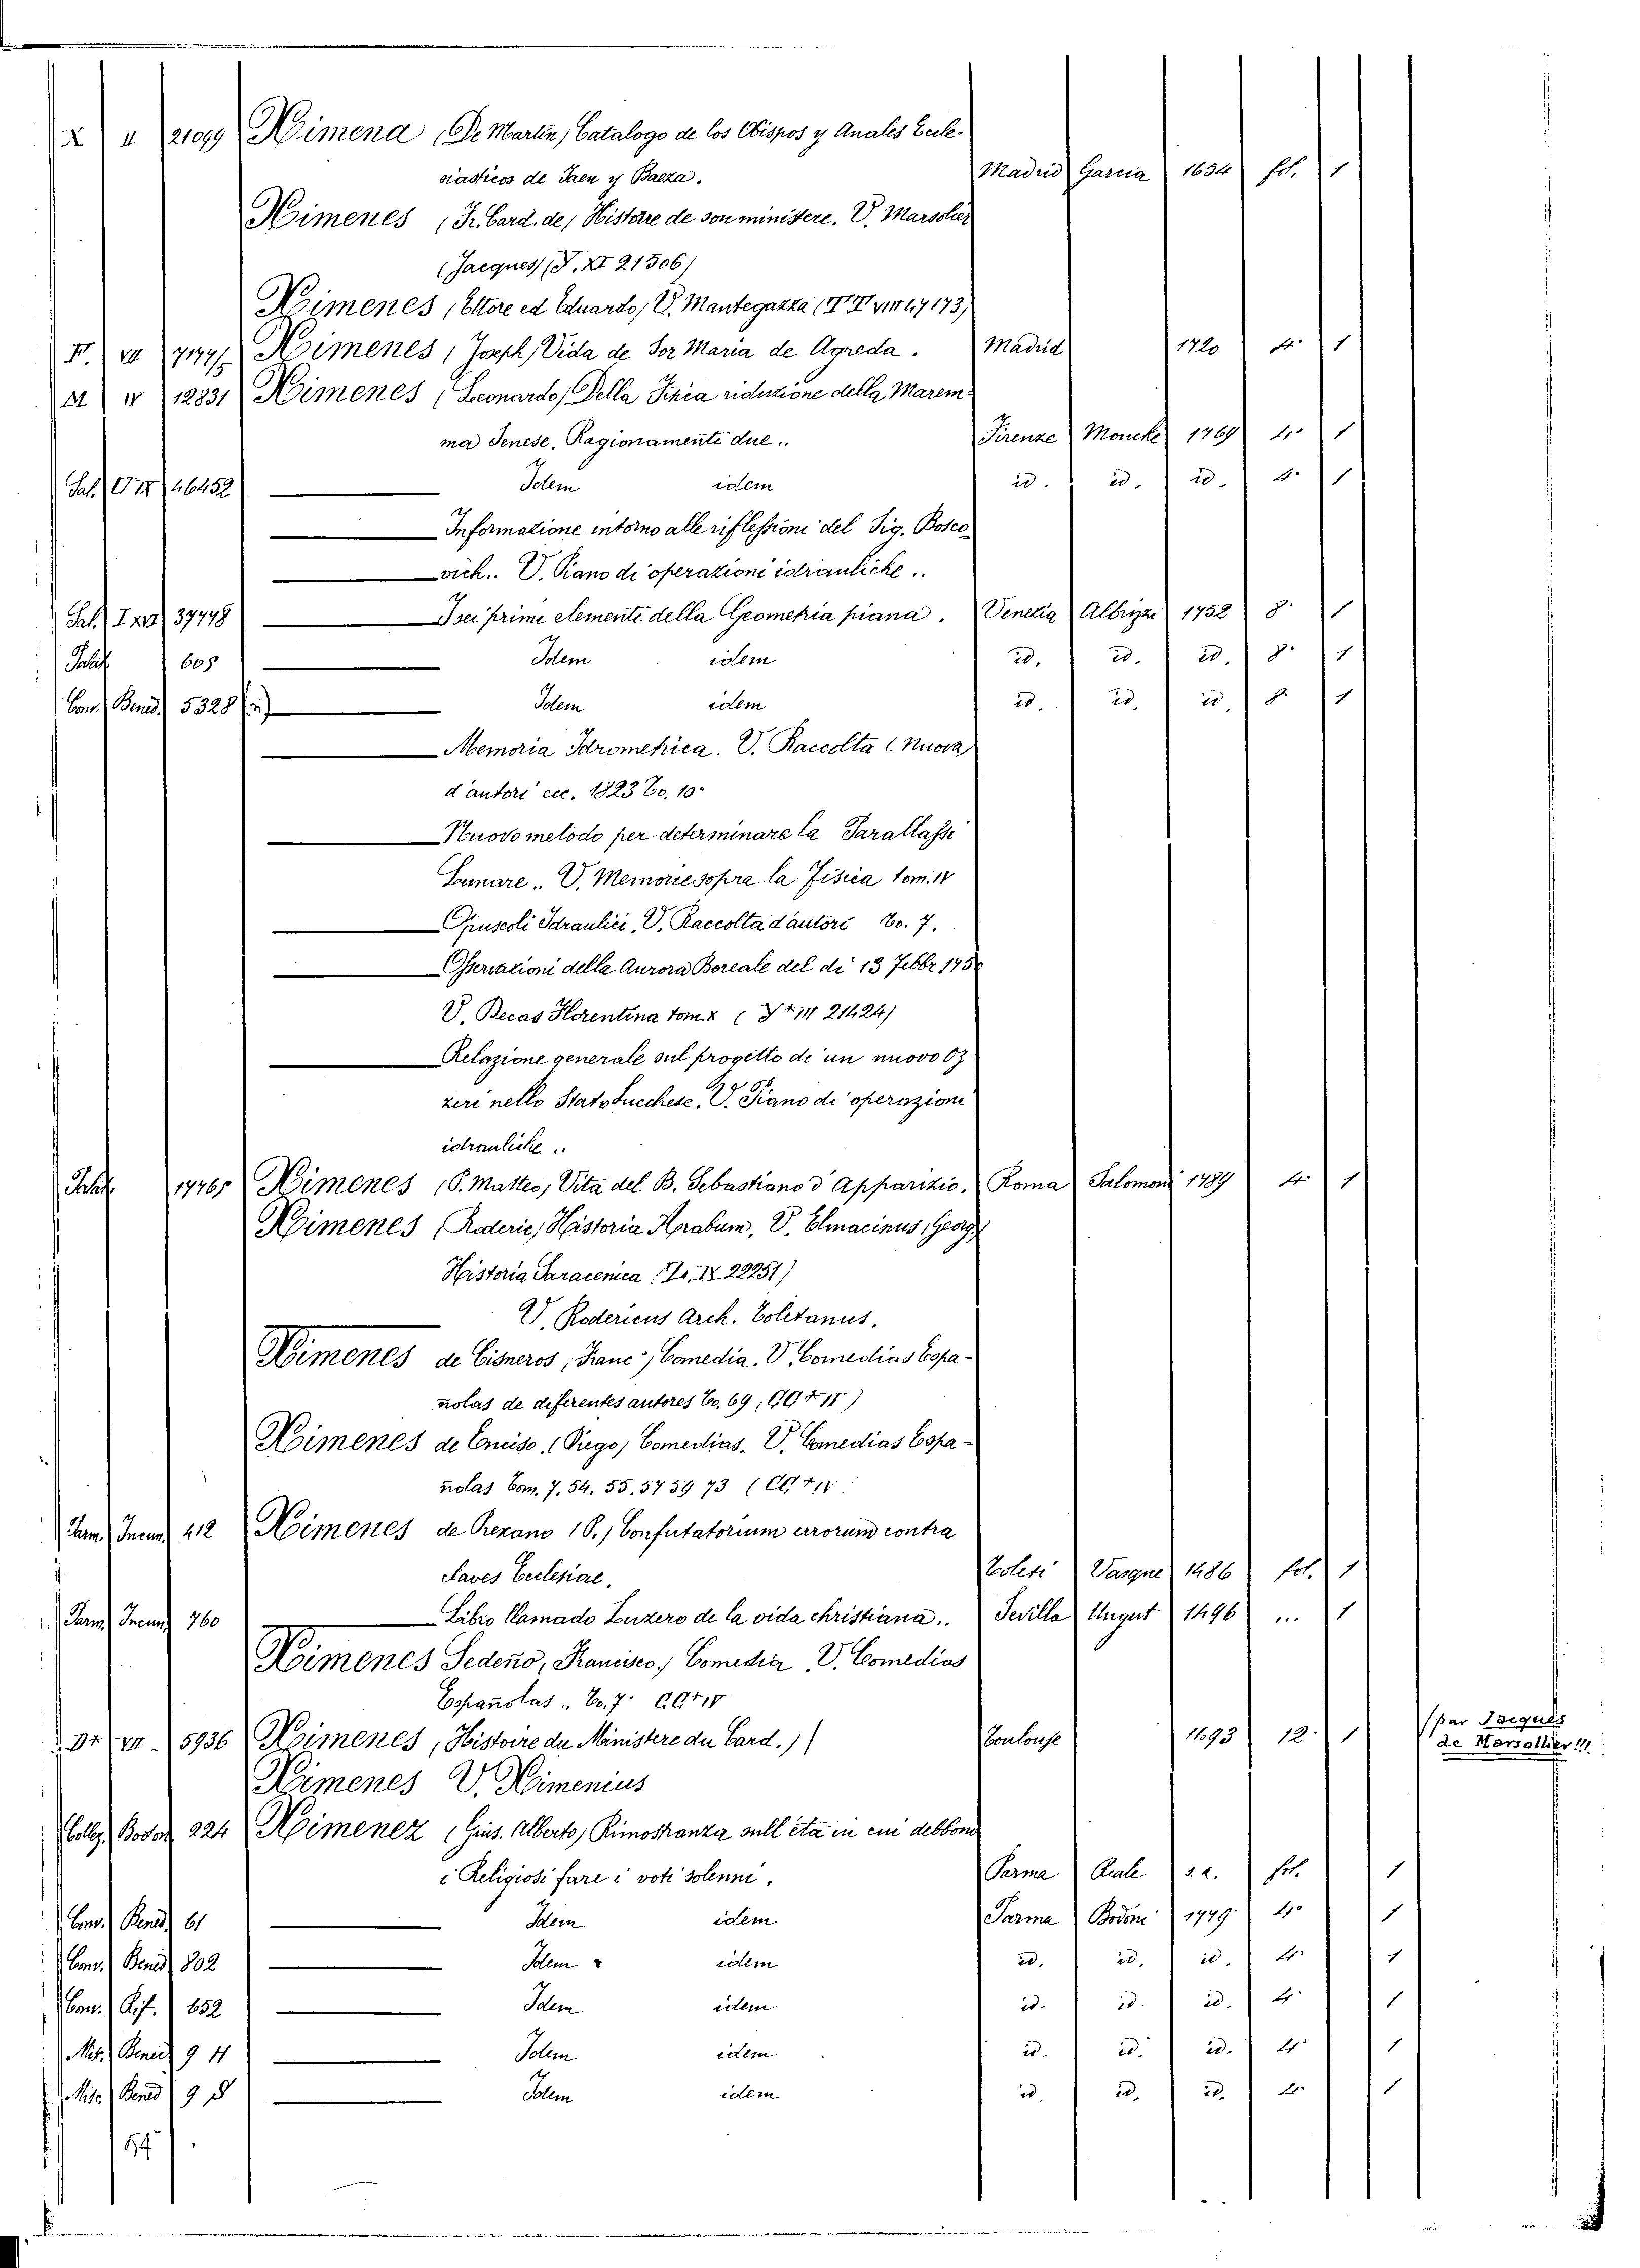 X II 21099 Ximena (De Martin) Catalogo de los Obispos y Anales Eccle-
siasticos de Jaen y Baeza. Madrid Garcia 1654 fol. 1
Ximenes (Fr. Card. de) Histoire de son ministere. V. Marsolier
(Jacques) (T. XI 21506)
Ximenes (Ettore ed Eduardo) V. Mantegazza
VII Ximenes (Joseph) Vida de Sor Maria de Agreda. Madrid 1720 4° 1
IV 12831 Ximenes (Leonardo) Della Fisica riduzione della Marem-
ma Senese. Ragionamenti due.. Firenze Moucke 1769 4° 1
Sal. 46452 Idem idem id. id. id. 4° 1
Informazione intorno alle riflessioni del Sig. Bosco-
vich.. V. Piano di operazioni idrauliche..
Sal. 37448 I sei primi elementi della Geometria piana. Venezia Albrizzi 1752 8° 1
Palat. 605 Idem idem id. id. id. 8° 1
Conv. Bened. 5328 Idem idem id. id. id. 8° 1
Memoria Idrometrica. V. Raccolta (Nuova)
d'autori ecc. 1823 To. 10°
Nuovo metodo per determinare la Parallasse
Lunare.. V. Memorie sopra la Fisica tom. IV
Opuscoli Idraulici, V. Raccolta d'autori To. 7.
Osservazioni della Aurora Boreale del di 13 Febbr 175
V. Becas Florentina tom. X 21424)
Relazione generale sul progetto di un nuovo Oz-
zeri nello Stato Lucchese. V. Piano di operazioni
idrauliche..
Palat. 14765 Ximenes (P. Matteo) Vita del B. Sebastiano d'Apparizio. Roma Salomoni 1789 4° 1
Ximenes (Roderic) Historia Arabum, V. Elmacinus (Georg)
Historia Saracenica 22251)
V. Rodericus Arch. Toletanus.
Ximenes de Cisneros (Franc°) Comedia. V. Comedias Espa-
ñolas de diferentes autores To. 69
Ximenes de Enciso (Diego) Comedias. V. Comedias Espa-
ñolas Tom. 7. 54. 55. 57 59 73
Parm. Incun. 412 Ximenes de Prexano (P.) Confutatorium errorum contra
claves Ecclesiae. Toleti Vasque 1486 fol. 1
Parm. Incun. 760 Libro llamado Luzero de la vida christiana.. Sevilla Ungut 1496 ... 1
Ximenes Sedeño, Francisco) Comedia V. Comedias
Españolas.. To. 7°
VII 5936 Ximenes (Histoire du Ministere du Card.) Toulouse 1693 12° 1 (par Jacques
de Marsollier!!!
Ximenes V. Ximenius
Collez. Bodon. 224 Ximenez (Gius. Alberto) Rimostranza sull'età in cui debbono
i Religiosi fare i voti solenni. Parma Reale s. a. fol. 1
Conv. Bened. 61 Idem idem Parma Bodoni 1779 4° 1
Conv. Bened. 802 Idem idem id. id. id. 4° 1
Conv. Rif. 652 Idem idem id. id. id. 4° 1
Mis. Bened. 9 11 Idem idem id. id. id. 4° 1
Mis. Bened. 9 8 Idem idem id. id. id. 4° 1
54